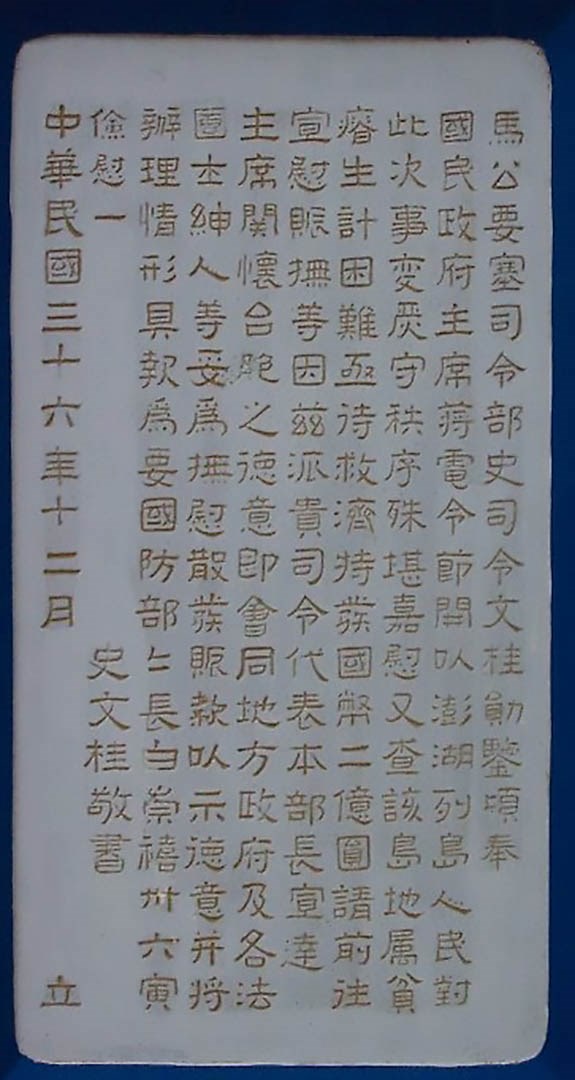 馬公要塞司令部史司令文桂勛鑒頃奉
國民政府主席蔣電令節開以澎湖列島人民對
此次事変嚴守秩序殊堪嘉慰又查該島地属貧
瘠生計困難亟待救濟特發國幣二億圓請前往
宣慰賑撫等因茲派貴司令代表本部長宣達
主席関懷台胞之德意即會同地方政府及各法
團士紳人等妥爲撫慰散發賑款以示德意并將
辦理情形具報爲要國防部部長白崇禧卅六寅
儉慰一
史文桂敬書
中華民國三十六年十二月 立